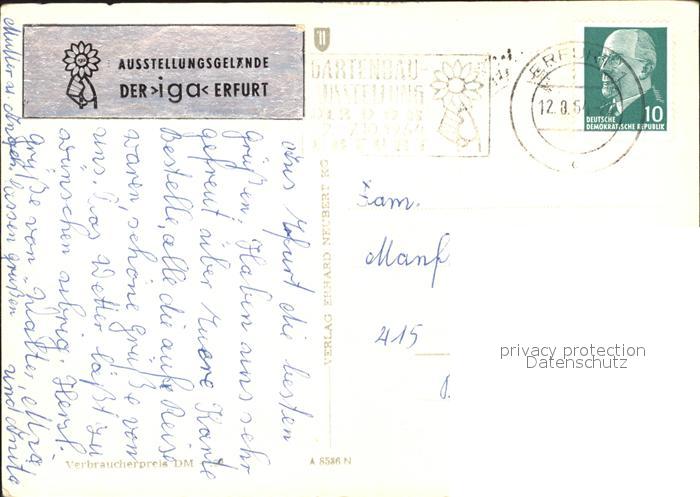 AUSSTELLUNGSGELÄNDE
DER >iga< ERFURT
GARTENBAU-
AUSSTELLUNG
DER DDR
ERFURT
ERFURT
12.8.64
10
DEUTSCHE
DEMOKRATISCHE REPUBLIK
Aus Erfurt die besten
Grüßen. Haben uns sehr
gefreut über Euere Karte
Bestelle, alle die auf Reise
waren, schöne Grüße von
uns. Das Wetter läßt zu
wünschen übrig. Herzl.
Grüße von Walter,
und Anita
Mutter u. lassen grüßen
VERLAG ERHARD NEUBERT KG
Fam.
Manf
415
privacy protection
Datenschutz
Verbraucherpreis DM
A 8586 N